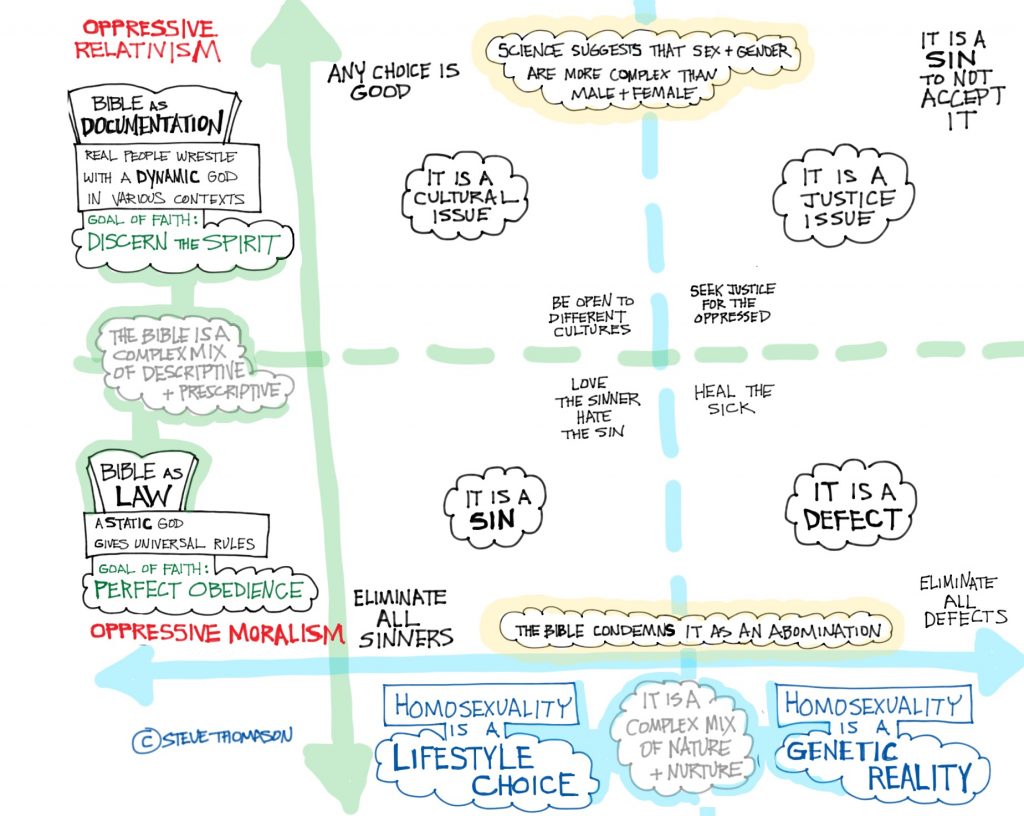 OPPRESSIVE
RELATIVISM
BIBLE AS
DOCUMENTATION
REAL PEOPLE WRESTLE
WITH A DYNAMIC GOD
IN VARIOUS CONTEXTS
GOAL OF FAITH:
DISCERN THE SPIRIT
THE BIBLE IS A
COMPLEX MIX
OF DESCRIPTIVE
+ PRESCRIPTIVE
BIBLE AS
LAW
A STATIC GOD
GIVES UNIVERSAL RULES
GOAL OF FAITH:
PERFECT OBEDIENCE
OPPRESSIVE MORALISM
ANY CHOICE IS
GOOD
SCIENCE SUGGESTS THAT SEX + GENDER
ARE MORE COMPLEX THAN
MALE + FEMALE
IT IS A
SIN
TO NOT
ACCEPT
IT
IT IS A
CULTURAL
ISSUE
IT IS A
JUSTICE
ISSUE
BE OPEN TO
DIFFERENT
CULTURES
SEEK JUSTICE
FOR THE
OPPRESSED
LOVE
THE SINNER
HATE
THE SIN
HEAL THE
SICK
IT IS A
SIN
IT IS A
DEFECT
ELIMINATE
ALL
SINNERS
THE BIBLE CONDEMNS IT AS AN ABOMINATION
ELIMINATE
ALL
DEFECTS
© STEVE THOMASON
HOMOSEXUALITY
IS A
LIFESTYLE
CHOICE
IT IS A
COMPLEX MIX
OF NATURE
+ NURTURE
HOMOSEXUALITY
IS A
GENETIC
REALITY